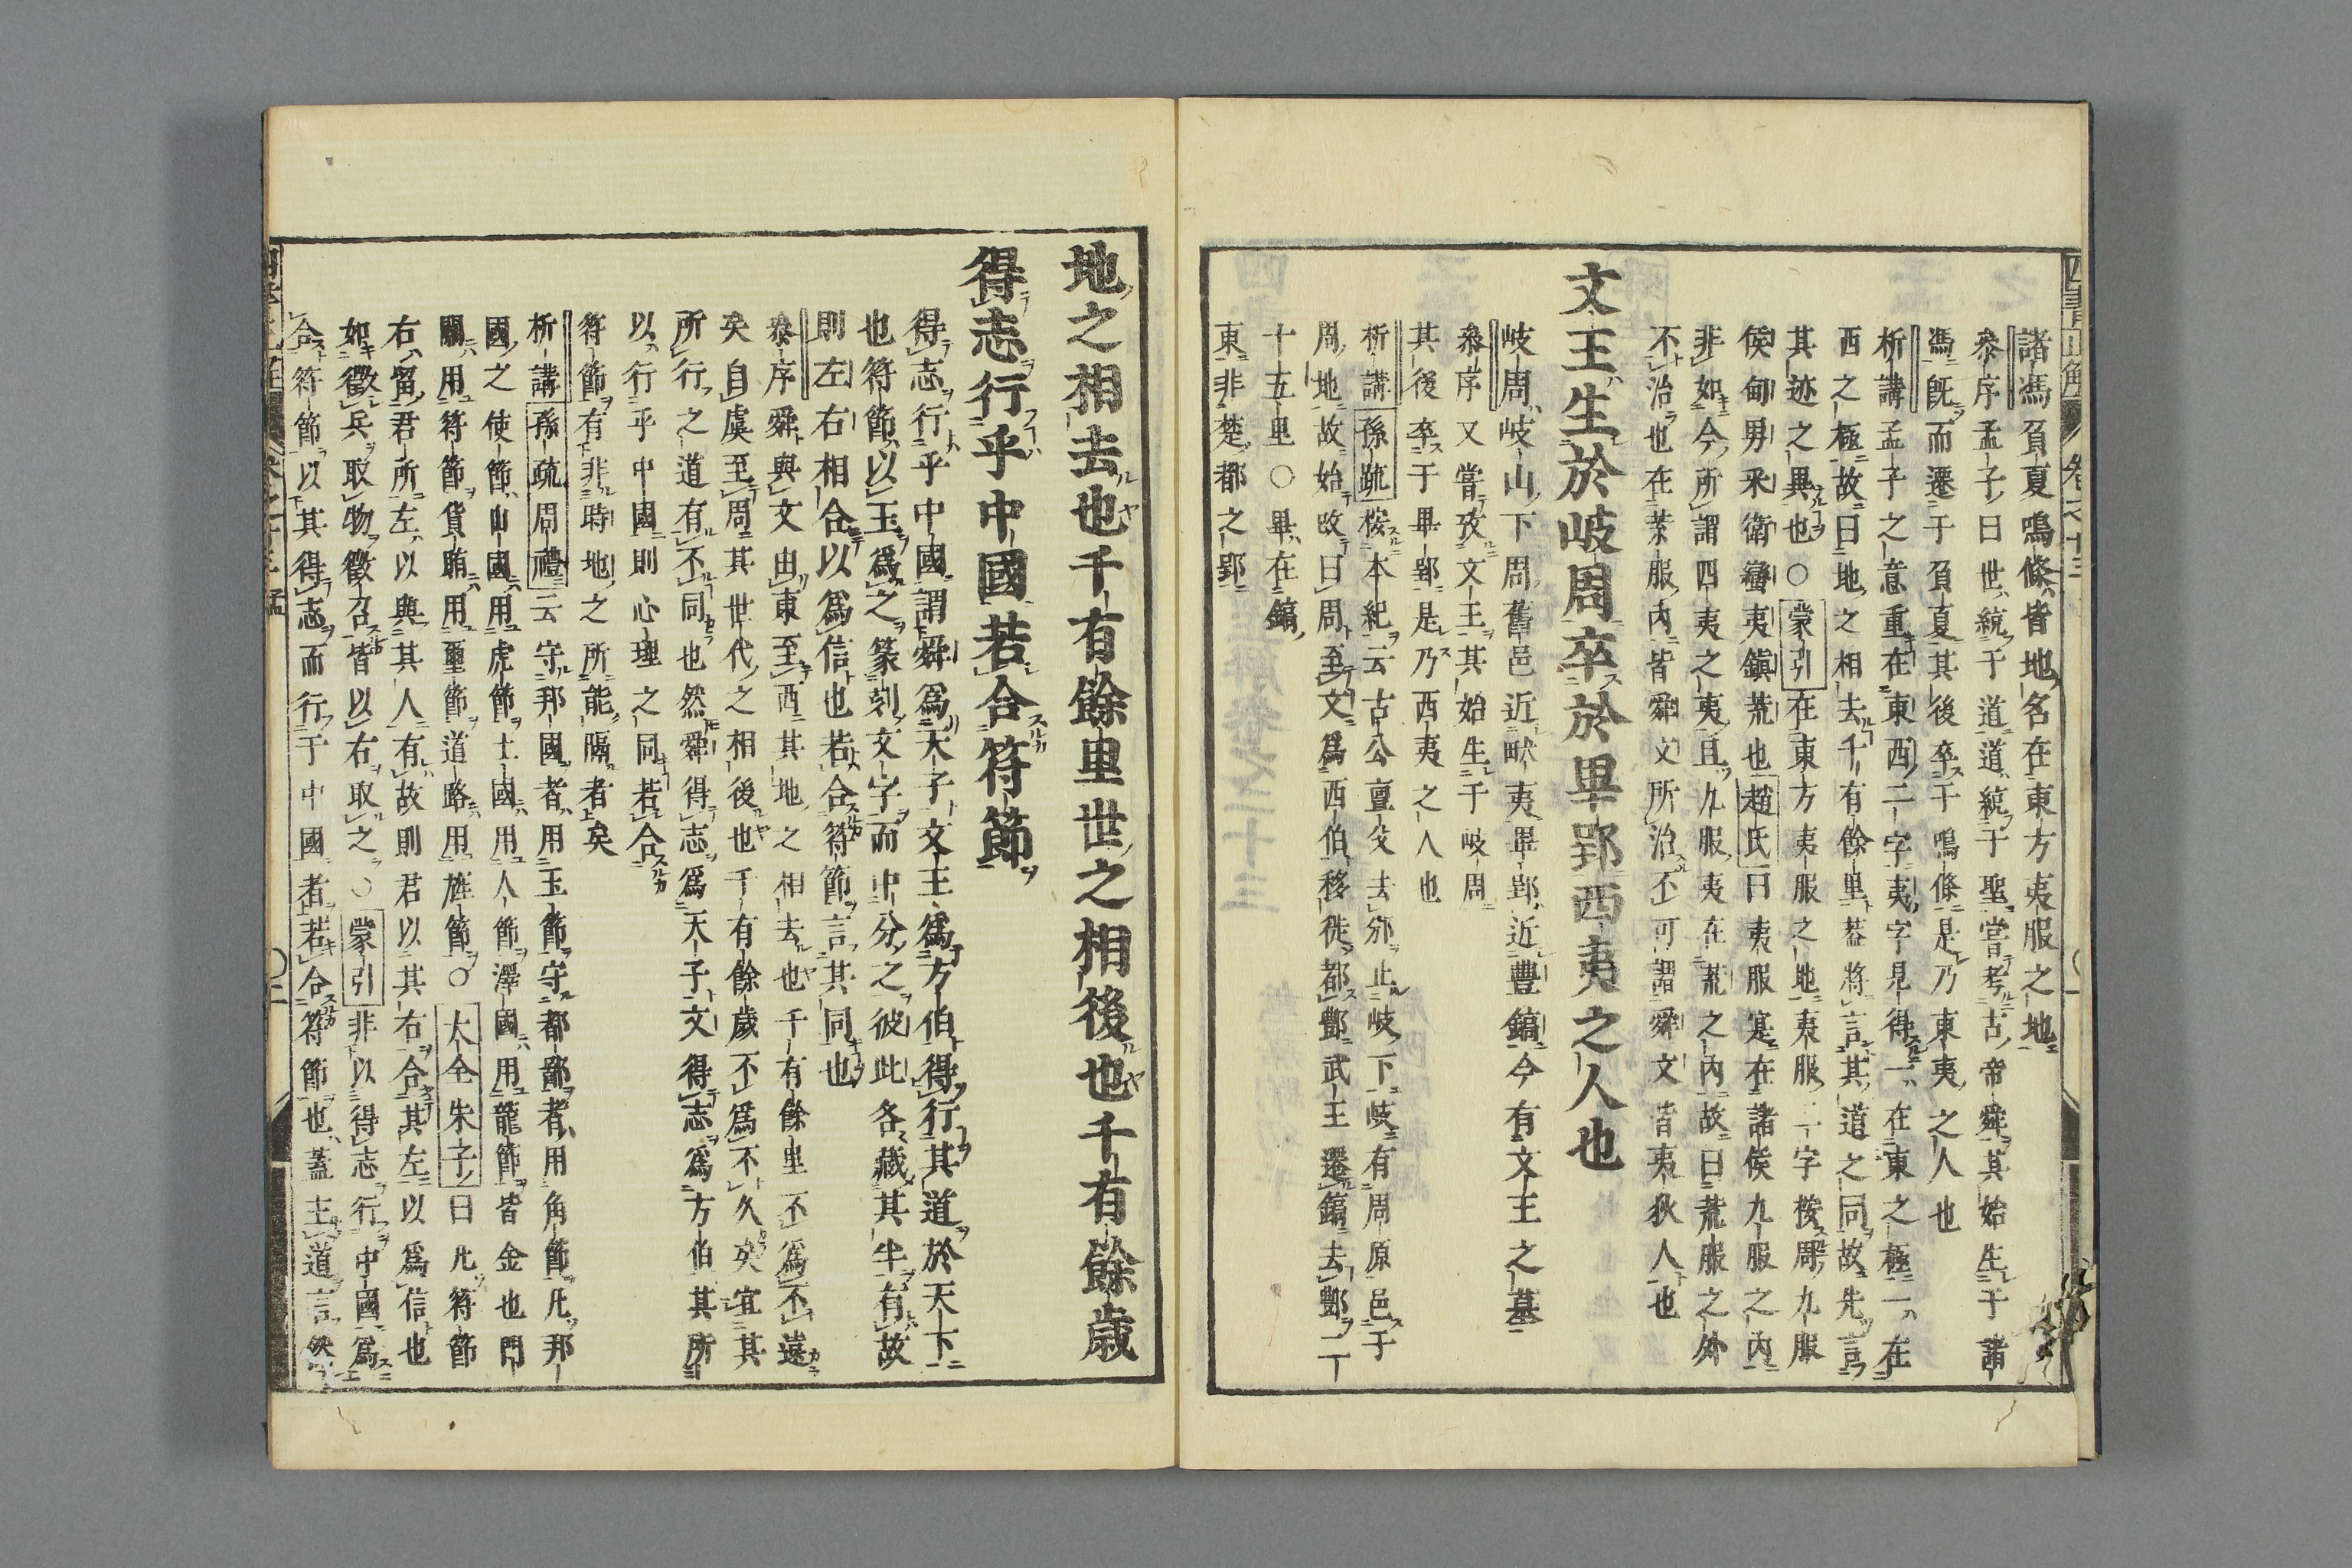 諸馮負夏鳴條皆地名在東方夷服之地
參序孟子曰世統于道道統于聖嘗考古帝舜其始生于諸
馮既而遷于負夏其後卒于鳴條是乃東夷之人也
析講孟子之意重在東西二字夷字見得一在東之極一在
西之極故曰地之相去千有餘里葢將言其道之同故先言
其迹之異也○蒙引在東方夷服之地夷服二字按周九服
侯甸男采衛蠻夷鎮荒也趙氏曰夷服寔在諸侯九服之內
非如今所謂四夷之夷且九服夷在荒之內故曰荒服之外
不治也在荒服內皆舜文所治不可謂舜文皆夷狄人也
文王生於岐周卒於畢郢西夷之人也
岐周岐山下周舊邑近畎夷畢郢近豐鎬今有文王之墓
參序又嘗攷文王其始生于岐周
其後卒于畢郢是乃西夷之人也
析講孫疏按本紀云古公亶父去邠止岐下岐有周原邑于
周地故始改曰周至文爲西伯移徙都酆武王遷鎬去酆二
十五里○畢在鎬
東非楚都之郢
地之相去也千有餘里世之相後也千有餘歲
得志行乎中國若合符節
得志行乎中國謂舜爲天子文王爲方伯得行其道於天下
也符節以玉爲之篆刻文字而中分之彼此各藏其半有故
則左右相合以爲信也若合符節言其同也
參序舜與文由東至西其地之相去也千有餘里不爲不遠
矣自虞至周其世代之相後也千有餘歲不爲不久矣宜其
所行之道有不同也然舜得志爲天子文得志爲方伯其所
以行乎中國則心理之同若合
符節有非時地之所能隔者矣
析講孫疏周禮云守邦國者用玉節守都鄙者用角節凡邦
國之使節山國用虎節土國用人節澤國用龍節皆金也門
關用符節貨賄用璽節道路用旌節○大全朱子曰凡符節
右留君所左以與其人有故則君以其右合其左以爲信也
如徵兵取物徵召皆以右取之○蒙引非以得志行中國爲
合符節以其得志而行于中國者若合符節也蓋主道言然